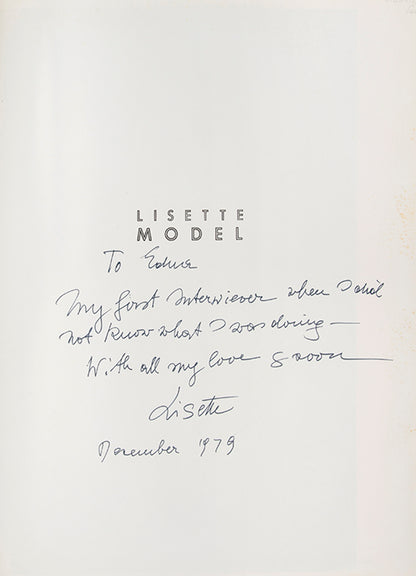 LISETTE
MODEL
To Edna
My first Interviewer when I did
not know what I was doing —
With all my love
Lisette
December 1979